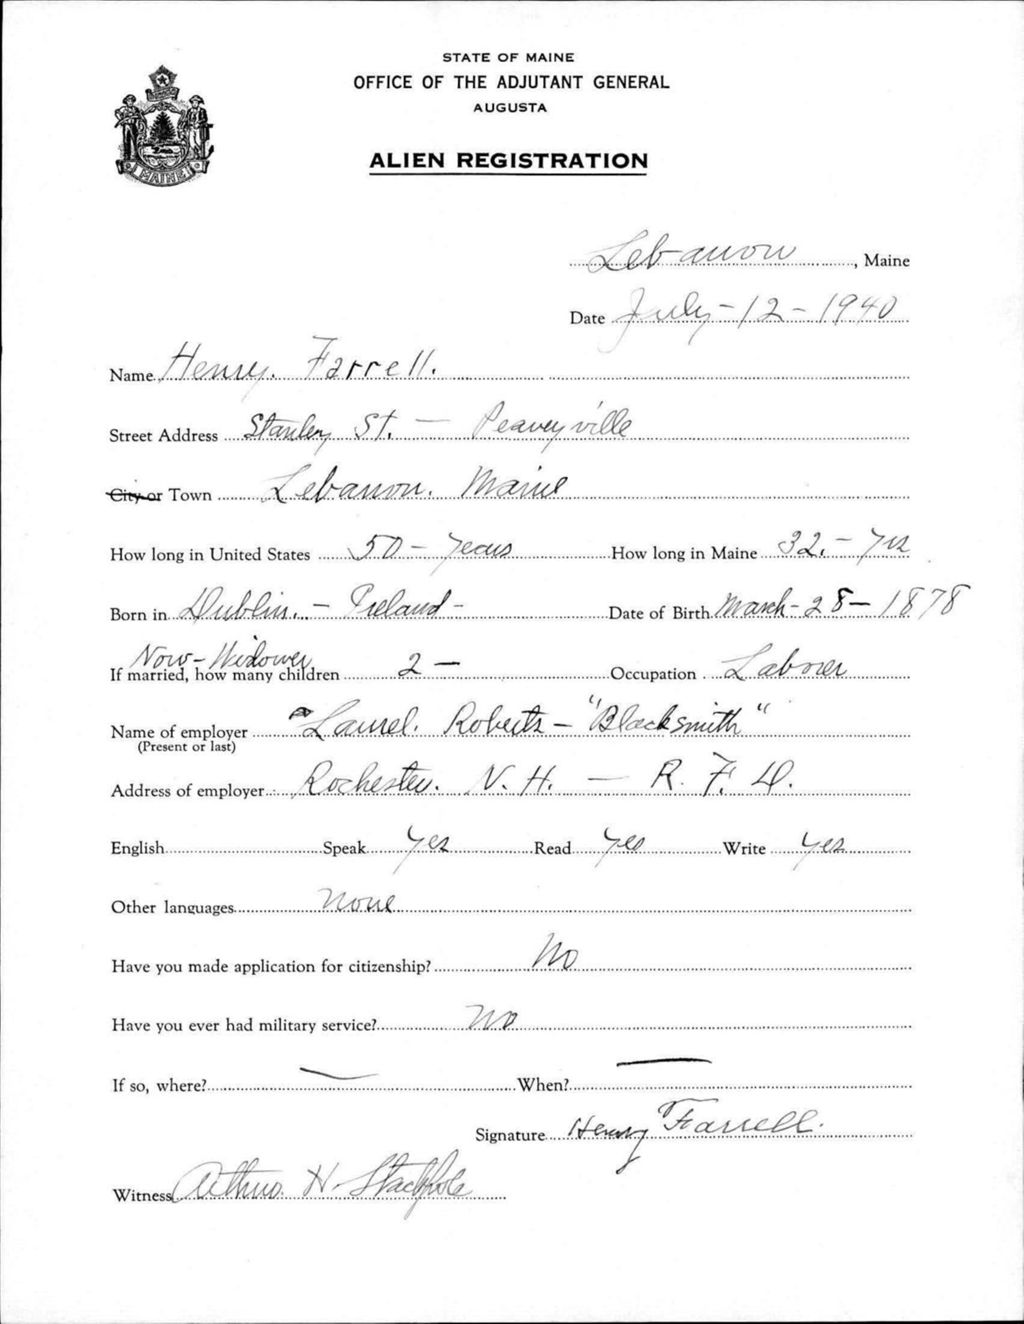 STATE OF MAINE
OFFICE OF THE ADJUTANT GENERAL
AUGUSTA
ALIEN REGISTRATION
MAINE
Lebanon, Maine
Date July - 12 - 1940
Name Henry. Farrell.
Street Address Stanley St. — Peaveyville
City or Town Lebanon. Maine
How long in United States 50 - years How long in Maine 32. - yrs
Born in Dublin. - Ireland - Date of Birth March - 28 - 1878
Now - Widower
If married, how many children 2 — Occupation Laborer
Name of employer Laurel. Roberts - "Blacksmith"
(Present or last)
Address of employer Rochester. N. H. — R. F. D.
English Speak yes Read yes Write yes
Other languages None
Have you made application for citizenship? No
Have you ever had military service? No
If so, where? — When? —
Signature Henry Farrell.
Witness Arthur. H. Stackpole